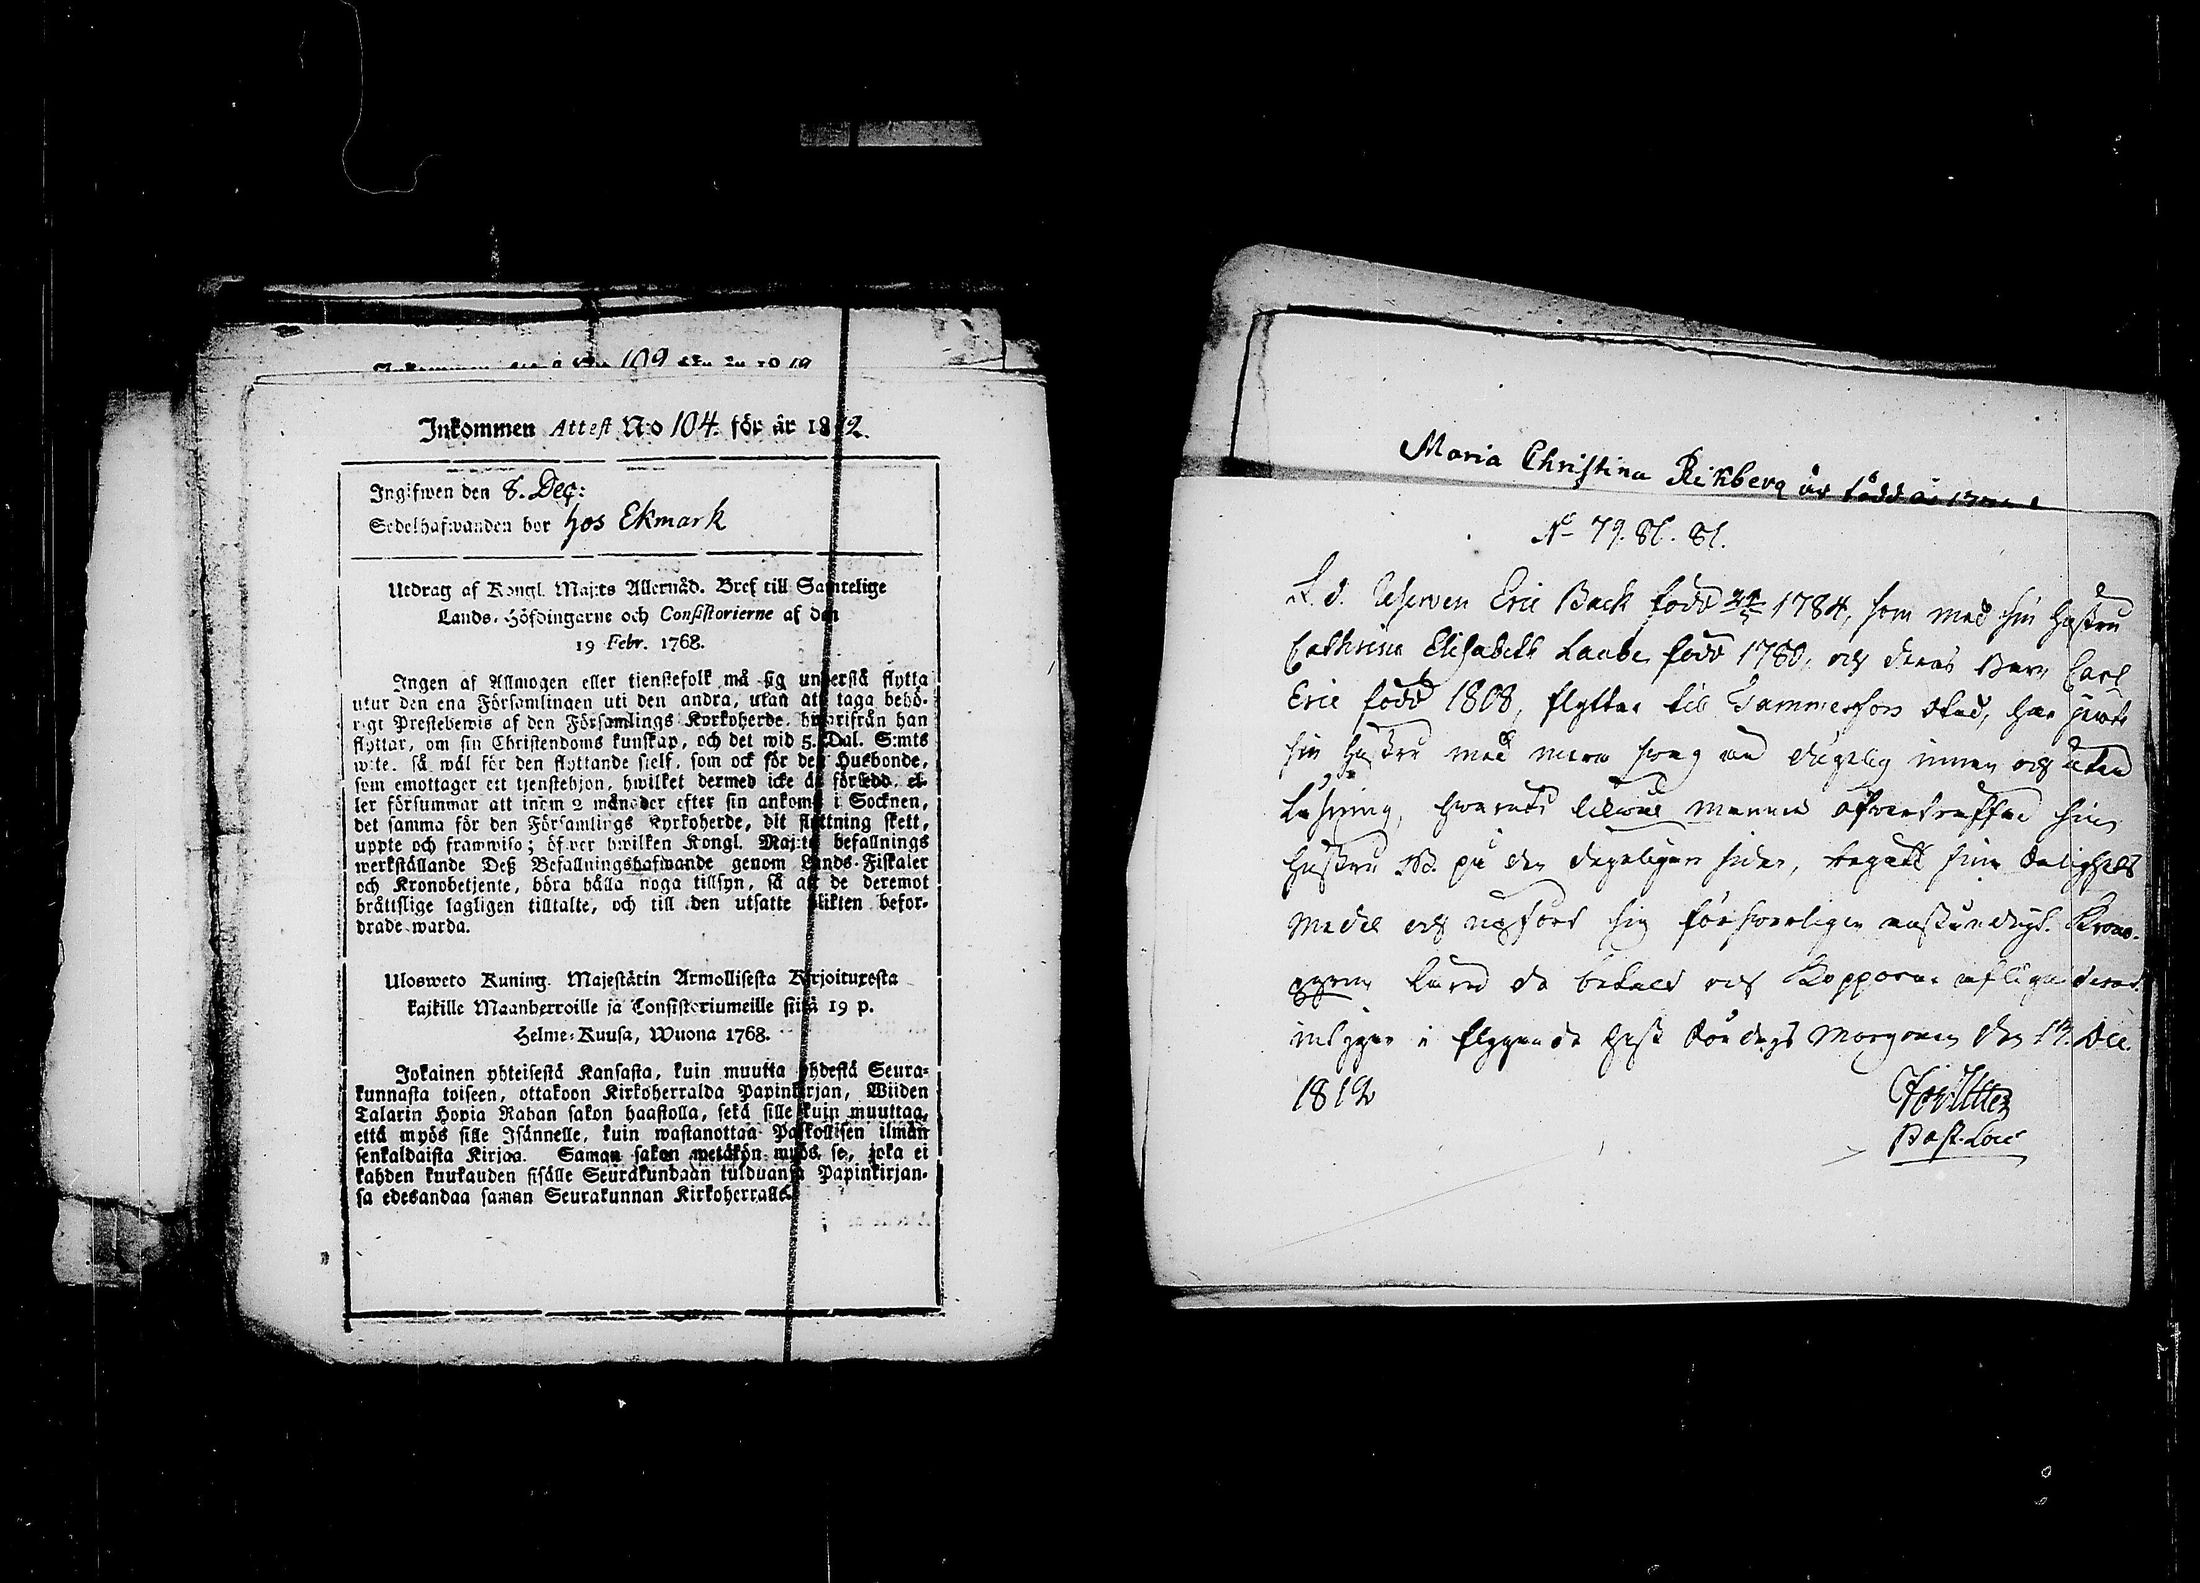 109
Inkommen Attest N:o 104. för år 1812.
Ingifwen den 8. Dec:
Sedelhafwanden bor hos Ekmark
Utdrag af Kongl. Maj:ts Allernåd. Bref till Samtelige
Lands-Höfdingarne och Consistorierne af den
19 Febr. 1768.
Ingen af Allmogen eller tjenstefolk må sig understå flytta
utur den ena Församlingen uti den andra, utan att taga behö-
rigt Prestebewis af den Församlings Kyrkoherde, hwarifrån han
flyttar, om sin Christendoms kunskap, och det wid 5. Dal. S:mts
wite, så wäl för den flyttande sielf, som ock för den Husbonde,
som emottager ett tjenstehjon, hwilket dermed icke är försedd, el-
ler försummar att inom 2 månader efter sin ankomst i Socknen,
det samma för den Församlings Kyrkoherde, dit flyttning skett,
uppte och framwisa; öfwer hwilken Kongl. Maj:ts befallnings
werkställande Deß Befallningshafwande genom Lands-Fiskaler
och Kronobetjente, böra hålla noga tillsyn, så att de deremot
bråttslige lagligen tilltalte, och till den utsatte plikten befor-
drade warda.
Ulosweto Kuning. Majestätin Armollisesta Kirjoituxesta
kaikille Maanherroille ja Consistoriumeille siitä 19 p.
Helme-Kuusa, Wuona 1768.
Jokainen yhteisestä Kansasta, kuin muutta yhdestä Seura-
kunnasta toiseen, ottakoon Kirkoherralda Papinkirjan, Wiiden
Talarin Hopia Rahan sakon haastolla, sekä sille kuin muuttaa,
että myös sille Isännelle, kuin wastanottaa Palkollisen ilman
senkaldaista Kirjaa. Saman sakon wetäkön myös se, joka ei
kahden kuukauden sisälle Seurakundaan tulduansa Papinkirjan-
sa edesandaa saman Seurakunnan Kirkoherralle.
Maria Christina Rikberg är född år
N:o 79. Sl. Sl.
Eric Back född 1784, som med sin Hustru
Cathrina Elisabeth Laube, född 1780, och deras Barn Carl
Eric född 1808, flyttar till Tammerfors Stad, har jemte
sin Hustru med mera innan och utan
Läsning, mannen öfverträffar sin
Hustru NB. på den sidan, begått sina Salighets
Medel och upfört sig anständigt. Krono-
betalt och Kopporne
i den 1812
1812